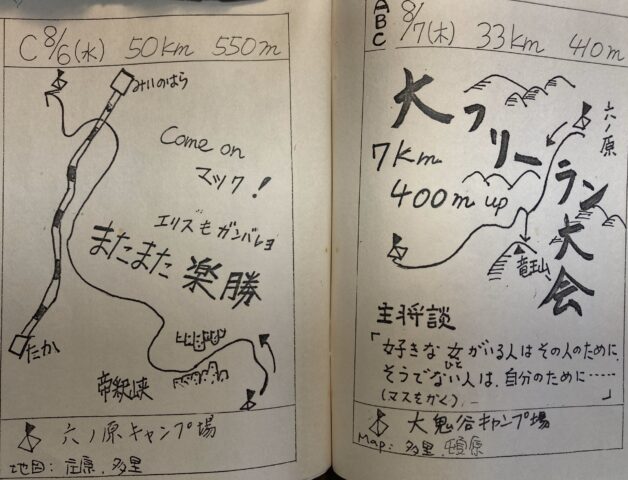 C 8/6(水) 50km 550m
みいのはら
Come on
マック!
エリズもガンバレヨ
またまた楽勝
たか
帝釈峡
六ノ原キャンプ場
地図: 庄原、多里
ABC 8/7(木) 33km 410m
大フリーラン大会
六ノ原
7km
400m up
竜王山
主将談
「好きな女がいる人はその人のために、
ひと
そうでない人は、自分のために……
(マスをかく)」
大鬼谷キャンプ場
Map: 多里、